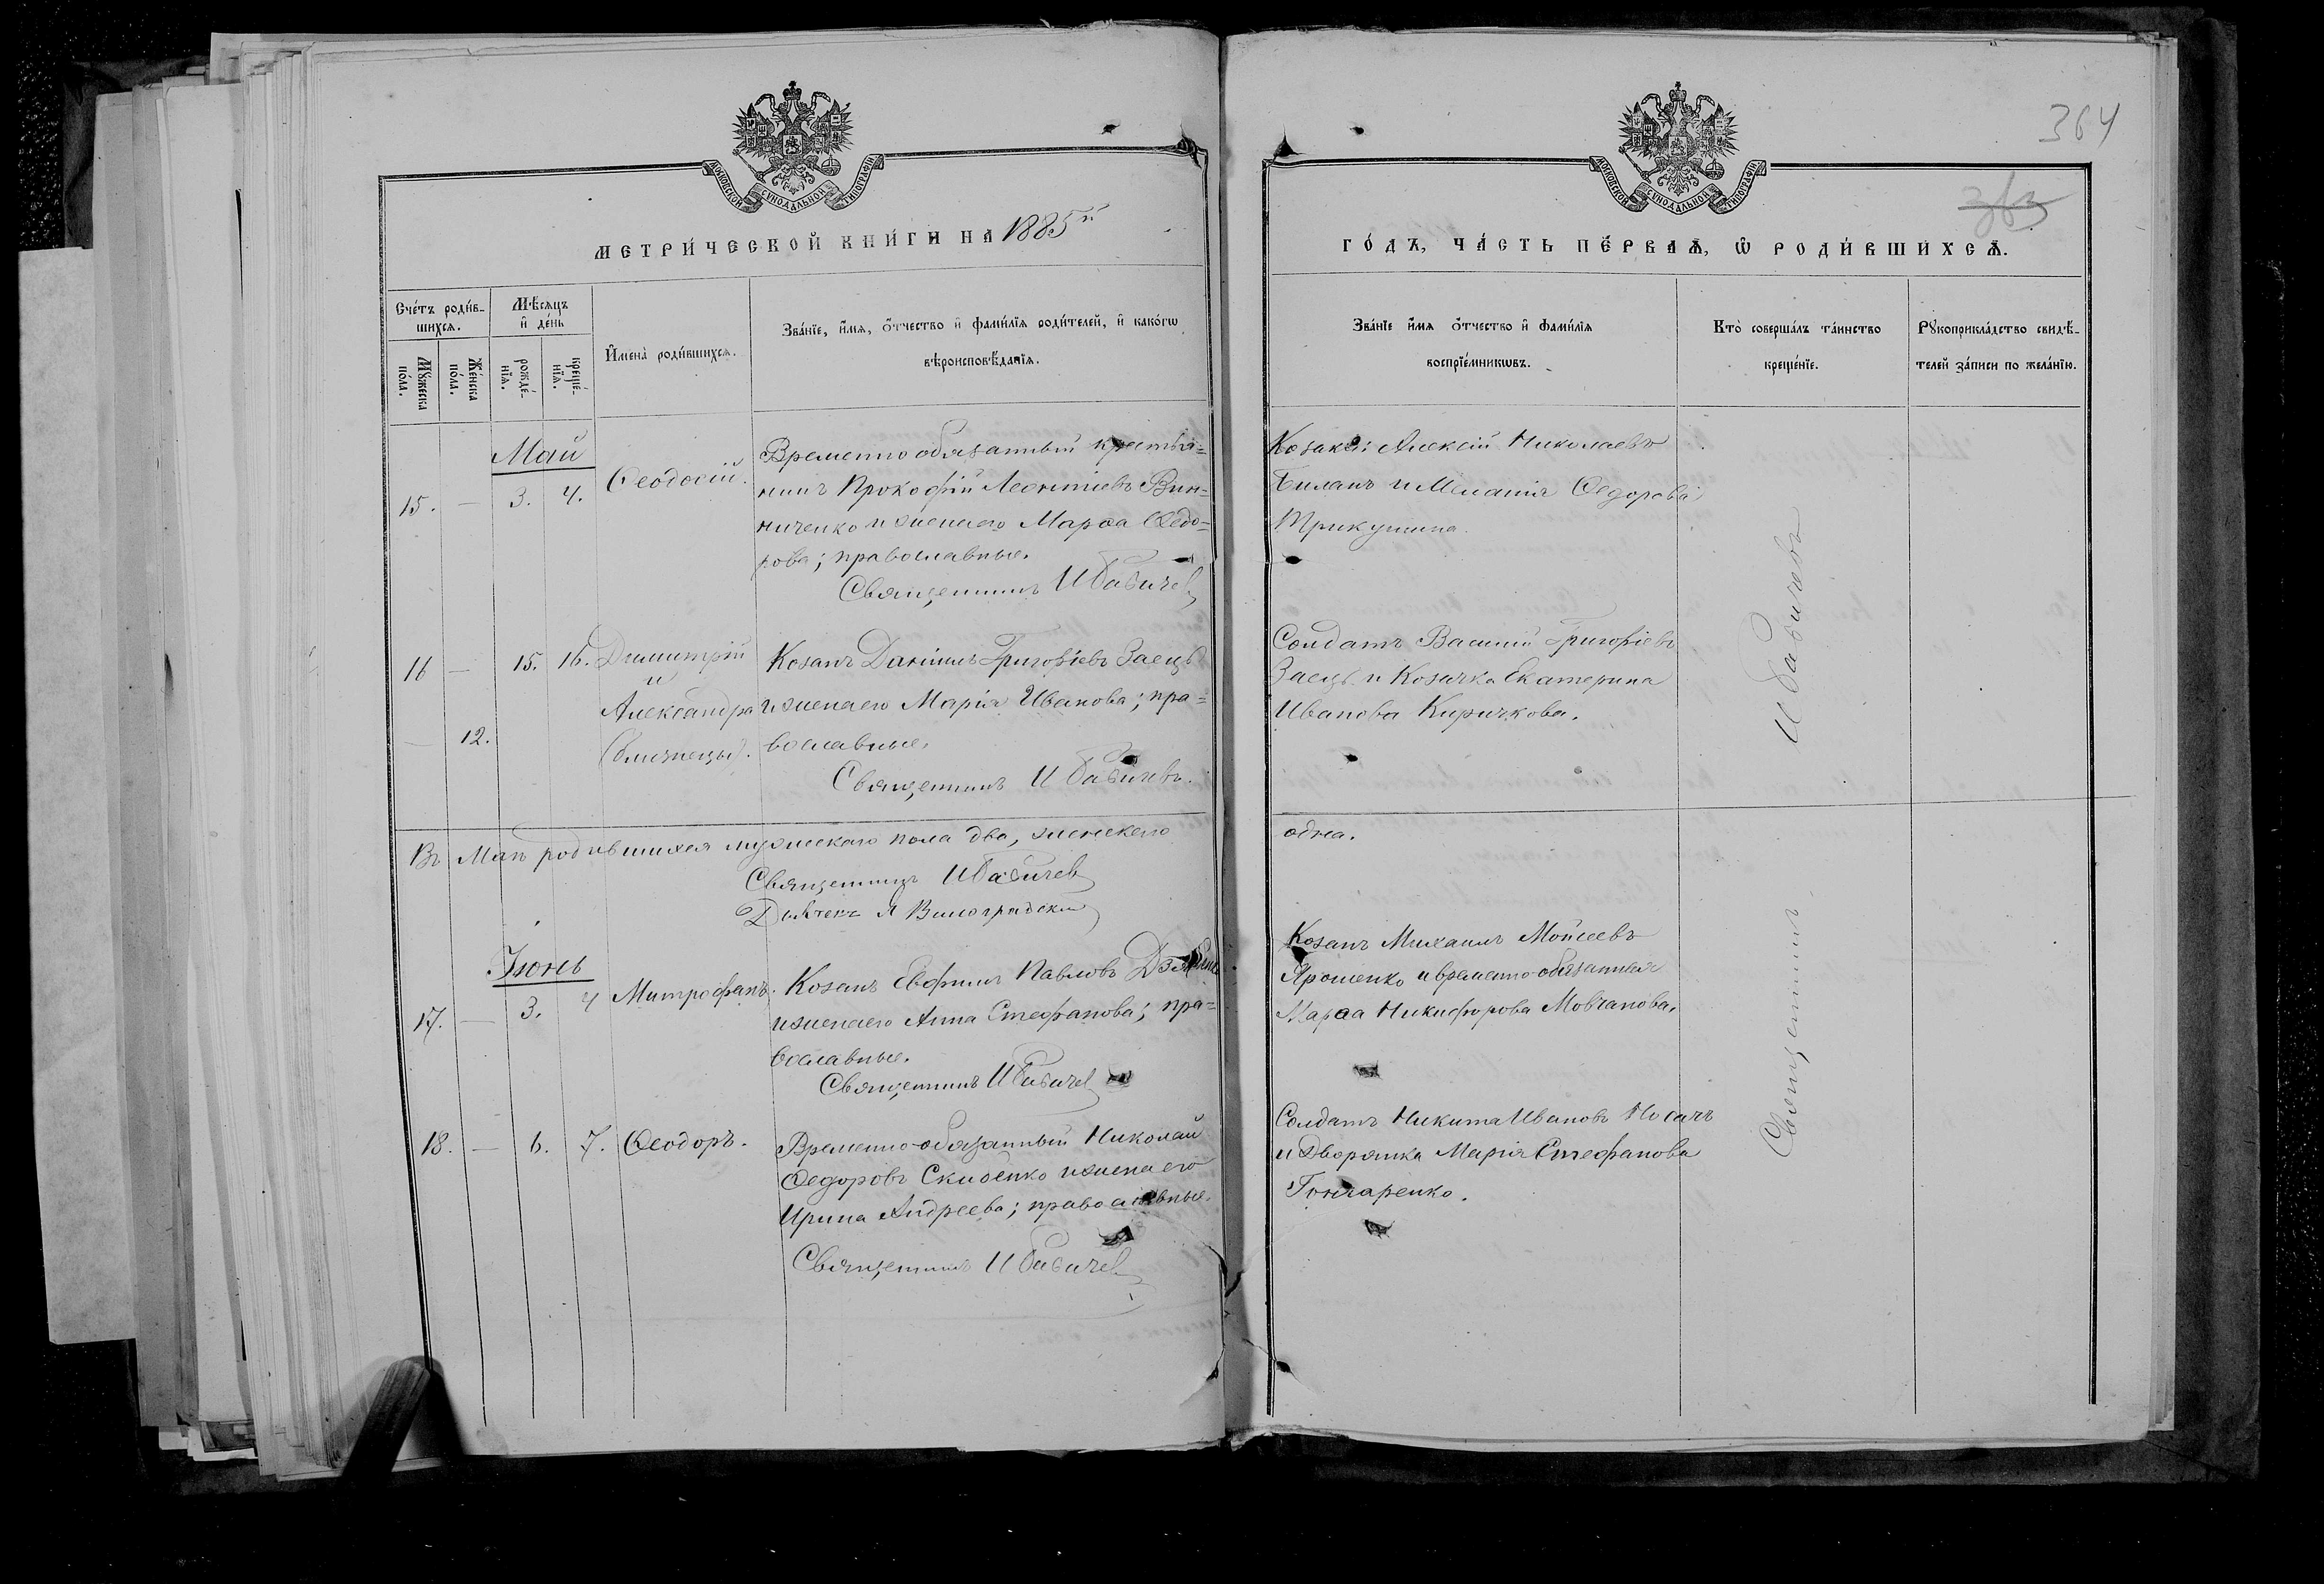 364
363
МОСКОВСКОЙ СѴНОДАЛЬНОЙ ТИПОГРАФІИ
МОСКОВСКОЙ СѴНОДАЛЬНОЙ ТИПОГРАФІИ
МЕТРИ́ЧЕСКОЙ КНИ́ГИ НА 1885й
ГО́ДЪ, ЧА́СТЬ ПЕ́РВАѦ, Ѡ РОДИ́ВШИХСѦ.
Сче́тъ роди́в-
шихсѧ.
Мѣ́сѧцъ
и҆ де́нь
Мꙋ́жеска
по́ла.
Же́нска
по́ла.
рожде́-
нїѧ.
креще́-
нїѧ.
И҆мена̀ роди́вшихсѧ.
Зва́нїе, и҆́мѧ, ѻ҆́тчество и҆ фами́лїѧ роди́телей, и҆ како́гѡ
вѣроисповѣ́данїѧ.
Зва́нїе и҆́мѧ ѻ҆́тчество и҆ фами́лїѧ
воспрїе́мникѡвъ.
Кто̀ соверша́лъ та́инство
креще́нїе.
Рꙋкоприкла́дство свидѣ́-
телей за́писи по жела́нїю.
Май
15. — 3. 4. Ѳеодосій.
Временно обязанный крестья=
нинъ Прокофій Леонтіевъ Вин=
ниченко и жена его Марѳа Ѳедо=
рова; православные.
Священникъ И Бабичев
Козаки: Алексій Николаевъ
Биланъ и Меланія Ѳедорова
Трикушина.
16 — 15. 16. Димитрій
и
Александра
— 12.
(близнецы).
Козакъ Даніилъ Григоріевъ Заецъ
и жена его Марія Иванова; пра=
вославные.
Священникъ И Бабичевъ.
Солдатъ Василій Григоріевъ
Заецъ и Козачка Екатерина
Иванова Киричкова.
Въ Маѣ родившихся мужескаго пола два, женскаго
одна.
Священникъ И Бабичев
Дьячекъ Виноградскій
Іюнь
17. — 3. 4 Митрофанъ.
Козакъ Евфимъ Павловъ
и жена его Анна Стефанова; пра=
вославные.
Священникъ И Бабичев
Козакъ Михаилъ Мойсеевъ
Ярошенко и временно-обязанная
Марѳа Никифорова Мовчанова.
18. — 6. 7. Ѳеодоръ.
Временно-обязанный Николай
Ѳедоровъ Скибенко и жена его
Ирина Андреева; православные.
Священникъ И Бабичев
Солдатъ Никита Ивановъ Носачъ
и Дворянка Марія Стефанова
Гончаренко.
Священникъ И Бабичевъ